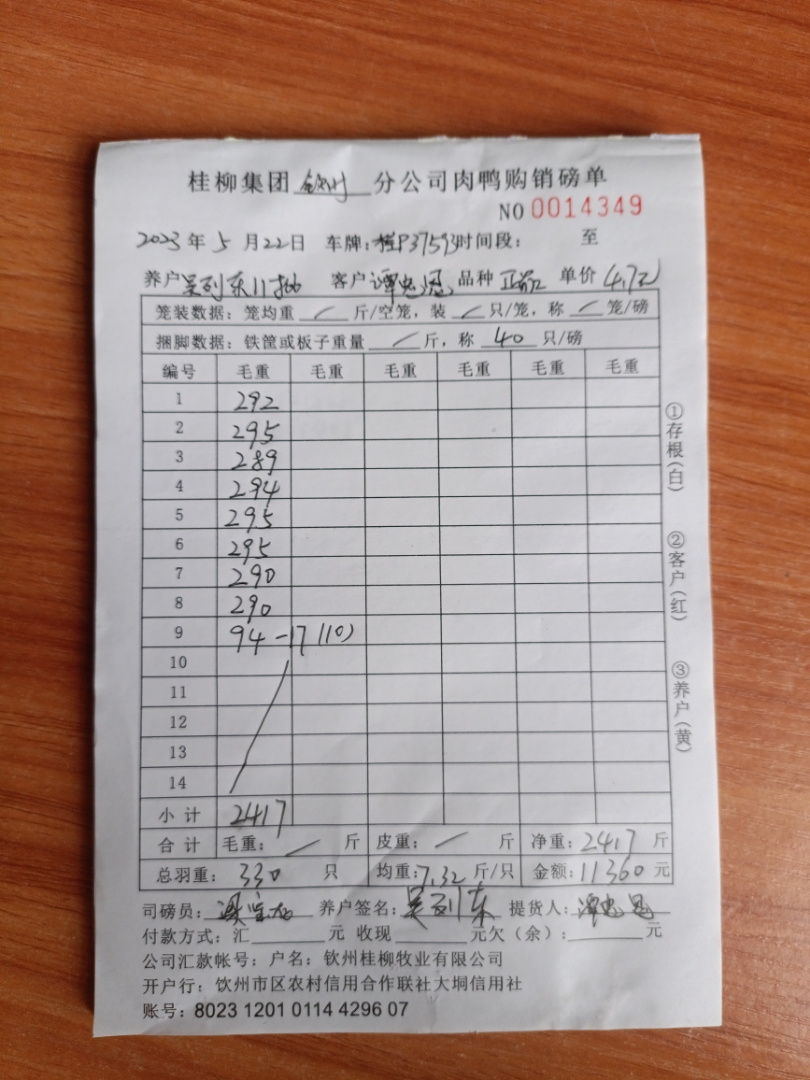 桂柳集团 钦州 分公司肉鸭购销磅单
NO 0014349
2023 年 5 月 22 日 车牌：桂P37593 时间段： 至
养户 吴列东11批 客户 谭忠恩 品种 单价 4.7元
笼装数据：笼均重 / 斤/空笼，装 / 只/笼，称 / 笼/磅
捆脚数据：铁筐或板子重量 / 斤，称 40 只/磅
编号 毛重 毛重 毛重 毛重 毛重 毛重
1 292
2 295
3 289
4 294
5 295
6 295
7 290
8 290
9 94 -17 (10)
10
11
12
13
14
小 计 2417
合 计 毛重： / 斤 皮重： / 斤 净重：2417 斤
总羽重： 330 只 均重：7.32 斤/只 金额：11360 元
司磅员： 养户签名：吴列东 提货人：谭忠恩
付款方式：汇 元 收现 元欠（余）： 元
公司汇款帐号：户名：钦州桂柳牧业有限公司
开户行：饮州市区农村信用合作联社大垌信用社
账号：8023 1201 0114 4296 07
①存根(白)
②客户(红)
③养户(黄)